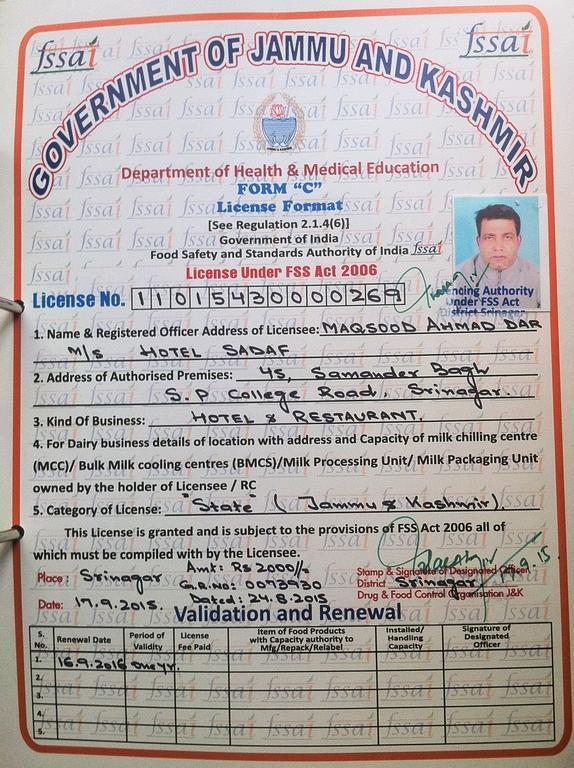 fssai
fssai
GOVERNMENT OF JAMMU AND KASHMIR
Department of Health & Medical Education
FORM "C"
License Format
[See Regulation 2.1.4(6)]
Government of India
Food Safety and Standards Authority of India fssai
License Under FSS Act 2006
License No. 11015430000269
ncing Authority
Under FSS Act
District Srinagar
1. Name & Registered Officer Address of Licensee: MAQSOOD AHMAD DAR
M/s HOTEL SADAF
2. Address of Authorised Premises: 45, Samander Bagh
S.P College Road, Srinagar.
3. Kind Of Business: HOTEL & RESTAURANT.
4. For Dairy business details of location with address and Capacity of milk chilling centre
(MCC)/ Bulk Milk cooling centres (BMCS)/Milk Processing Unit/ Milk Packaging Unit
owned by the holder of Licensee / RC
5. Category of License: "State" (Jammu & Kashmir).
This License is granted and is subject to the provisions of FSS Act 2006 all of
which must be compiled with by the Licensee.
Place: Srinagar Amt: Rs 2000/- Stamp & Signature of Designated Officer
G.R.No: 0073930 District Srinagar
Date: 17.9.2015. Dated: 24.8.2015 Drug & Food Control Organisation J&K
Validation and Renewal
S. No. Renewal Date Period of Validity License Fee Paid Item of Food Products with Capacity authority to Mfg/Repack/Relabel Installed/ Handling Capacity Signature of Designated Officer
1. 16.9.2016 one yr.
2.
3.
4.
5.